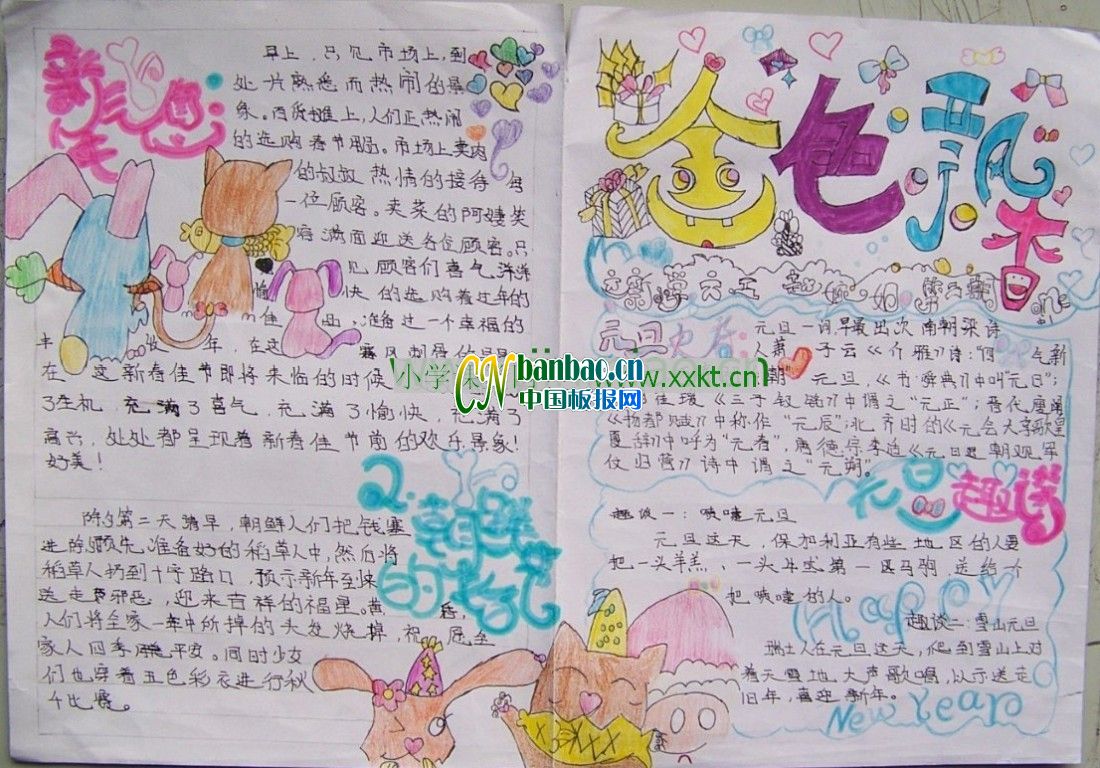 早上，只见市场上，到
处片熟悉而热闹的景
象。百货摊上，人们正热闹
的选购春节用品。市场上卖肉
的叔叔热情的接待每
一位顾客。卖菜的阿姨笑
容满面迎送各位顾客。只
见顾客们喜气洋洋
愉快的选购着过年的
佳 品，准备过一个幸福的
年，在这
在这新春佳节即将来临的时候
了生机，充满了喜气，充满了愉快，充满了
高兴，处处都呈现着新春佳节前的欢乐景象！
好美！
2.朝鲜的
除夕第二天清早，朝鲜人们把钱塞
进预先准备好的稻草人中，然后将
稻草人扔到十字路口，预示新年至来
送走 邪恶，迎来吉祥的福星。黄昏，
人们将全家一年中所掉的头发烧掉，祝愿全
家人四季 平安。同时少女
们也穿着五色彩衣进行秋
千比赛。
金色飘香
元旦
元旦一词，早最出次南朝梁诗
人萧子云《介雅》诗：
元旦，《书·舜典》中叫"元日"；
中谓之"元正"；晋代庾阐
《扬都赋》中称作"元辰"；北齐时的《元会大享歌皇
夏辞》中呼为"元春"，唐德宗李适《元日退朝观军
仗归营》诗中谓之"元朔"。
元旦趣谈
趣谈一：喷嚏元旦
元旦这天，保加利亚有些地区的人要
把一头羊羔、一头牛或第一匹马驹，送给
把喷嚏的人。
HAPPY
趣谈二：雪山元旦
瑞士人在元旦这天，爬到雪山上对
着天雪地大声歌唱，以示送走
旧年，喜迎新年。
New Year
小学课
www.xxkt.cn
CN banbao.cn
中国板报网